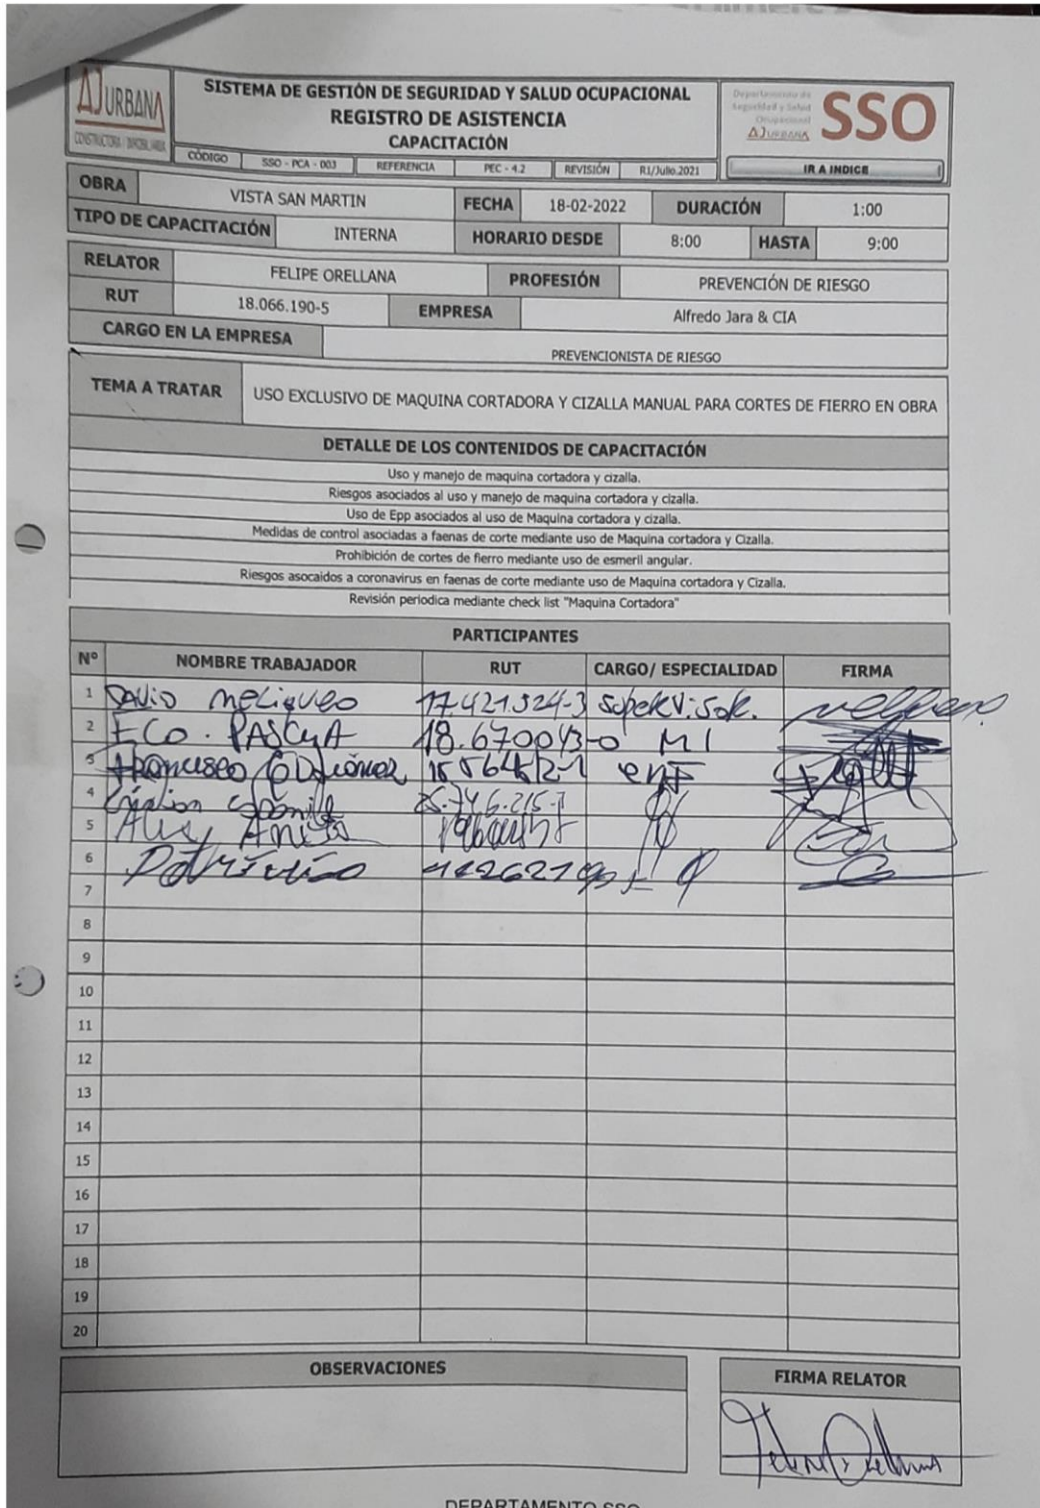 AJURBANA
CONSTRUCTORA / INMOBILIARIA
SISTEMA DE GESTIÓN DE SEGURIDAD Y SALUD OCUPACIONAL
REGISTRO DE ASISTENCIA
CAPACITACIÓN
Departamento de
Seguridad y Salud
Ocupacional
AJURBANA
SSO
CÓDIGO SSO - PCA - 003 REFERENCIA PEC - 4.2 REVISIÓN R1/Julio.2021 IR A INDICE
OBRA VISTA SAN MARTIN FECHA 18-02-2022 DURACIÓN 1:00
TIPO DE CAPACITACIÓN INTERNA HORARIO DESDE 8:00 HASTA 9:00
RELATOR FELIPE ORELLANA PROFESIÓN PREVENCIÓN DE RIESGO
RUT 18.066.190-5 EMPRESA Alfredo Jara & CIA
CARGO EN LA EMPRESA PREVENCIONISTA DE RIESGO
TEMA A TRATAR USO EXCLUSIVO DE MAQUINA CORTADORA Y CIZALLA MANUAL PARA CORTES DE FIERRO EN OBRA
DETALLE DE LOS CONTENIDOS DE CAPACITACIÓN
Uso y manejo de maquina cortadora y cizalla.
Riesgos asociados al uso y manejo de maquina cortadora y cizalla.
Uso de Epp asociados al uso de Maquina cortadora y cizalla.
Medidas de control asociadas a faenas de corte mediante uso de Maquina cortadora y Cizalla.
Prohibición de cortes de fierro mediante uso de esmeril angular.
Riesgos asocaidos a coronavirus en faenas de corte mediante uso de Maquina cortadora y Cizalla.
Revisión periodica mediante check list "Maquina Cortadora"
PARTICIPANTES
Nº NOMBRE TRABAJADOR RUT CARGO/ ESPECIALIDAD FIRMA
1 DAVID MELIQUEO 17.421.324-3 SUPERVISOR.
2 FCO. PASCUA 18.670043-0 M1
3 Francisco
4 25.746.215-7
5 Alex
6 Patricio
7
8
9
10
11
12
13
14
15
16
17
18
19
20
OBSERVACIONES
FIRMA RELATOR
DEPARTAMENTO SSO